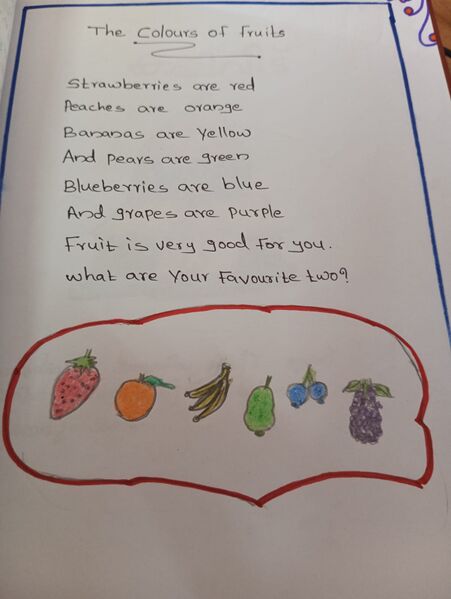 The Colours of fruits
Strawberries are red
Peaches are orange
Bananas are yellow
And pears are green
Blueberries are blue
And grapes are purple
Fruit is very good for you.
what are Your Favourite two?